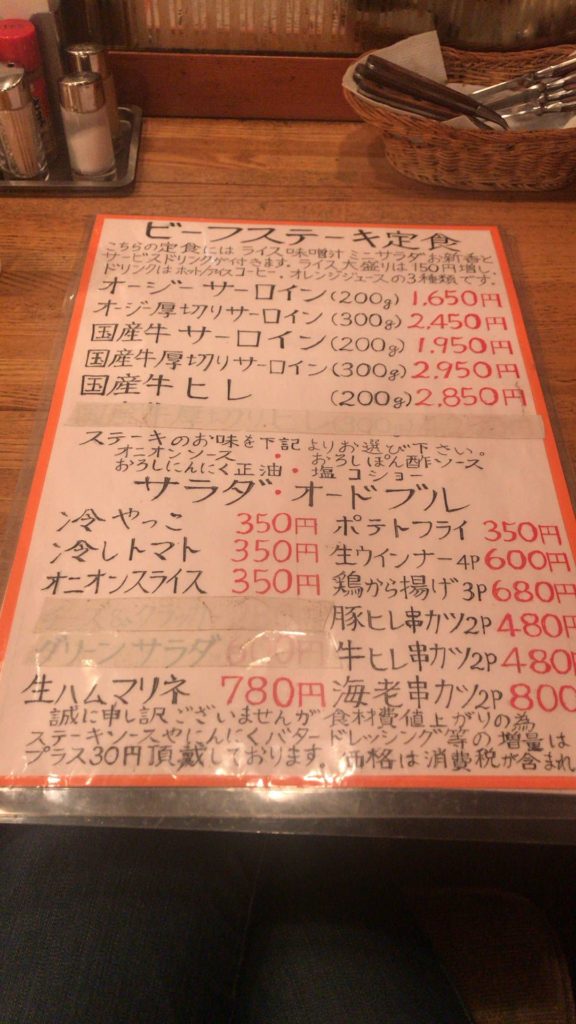 ビーフステーキ定食
こちらの定食には ライス 味噌汁 ミニサラダ お新香と
サービスドリンクが付きます。ライス大盛りは150円増し、
ドリンクは ホット/アイスコーヒー、オレンジジュースの3種類です。
オージーサーロイン (200g) 1.650円
オージー厚切りサーロイン (300g) 2.450円
国産牛サーロイン (200g) 1.950円
国産牛厚切りサーロイン (300g) 2.950円
国産牛ヒレ (200g) 2.850円
国産牛厚切りヒレ
ステーキのお味を下記よりお選び下さい。
オニオンソース ・ おろしぽん酢ソース
おろしにんにく正油 ・ 塩コショー
サラダ・オードブル
冷やっこ 350円 ポテトフライ 350円
冷しトマト 350円 生ウインナー4P 600円
オニオンスライス 350円 鶏から揚げ3P 680円
豚ヒレ串カツ2P 480円
グリーンサラダ 600円 牛ヒレ串カツ2P 480
生ハムマリネ 780円 海老串カツ2P 800
誠に申し訳ございませんが 食材費値上がりの為
ステーキソースやにんにくバター ドレッシング等の増量は
プラス30円頂戴しております。価格は消費税が含まれ